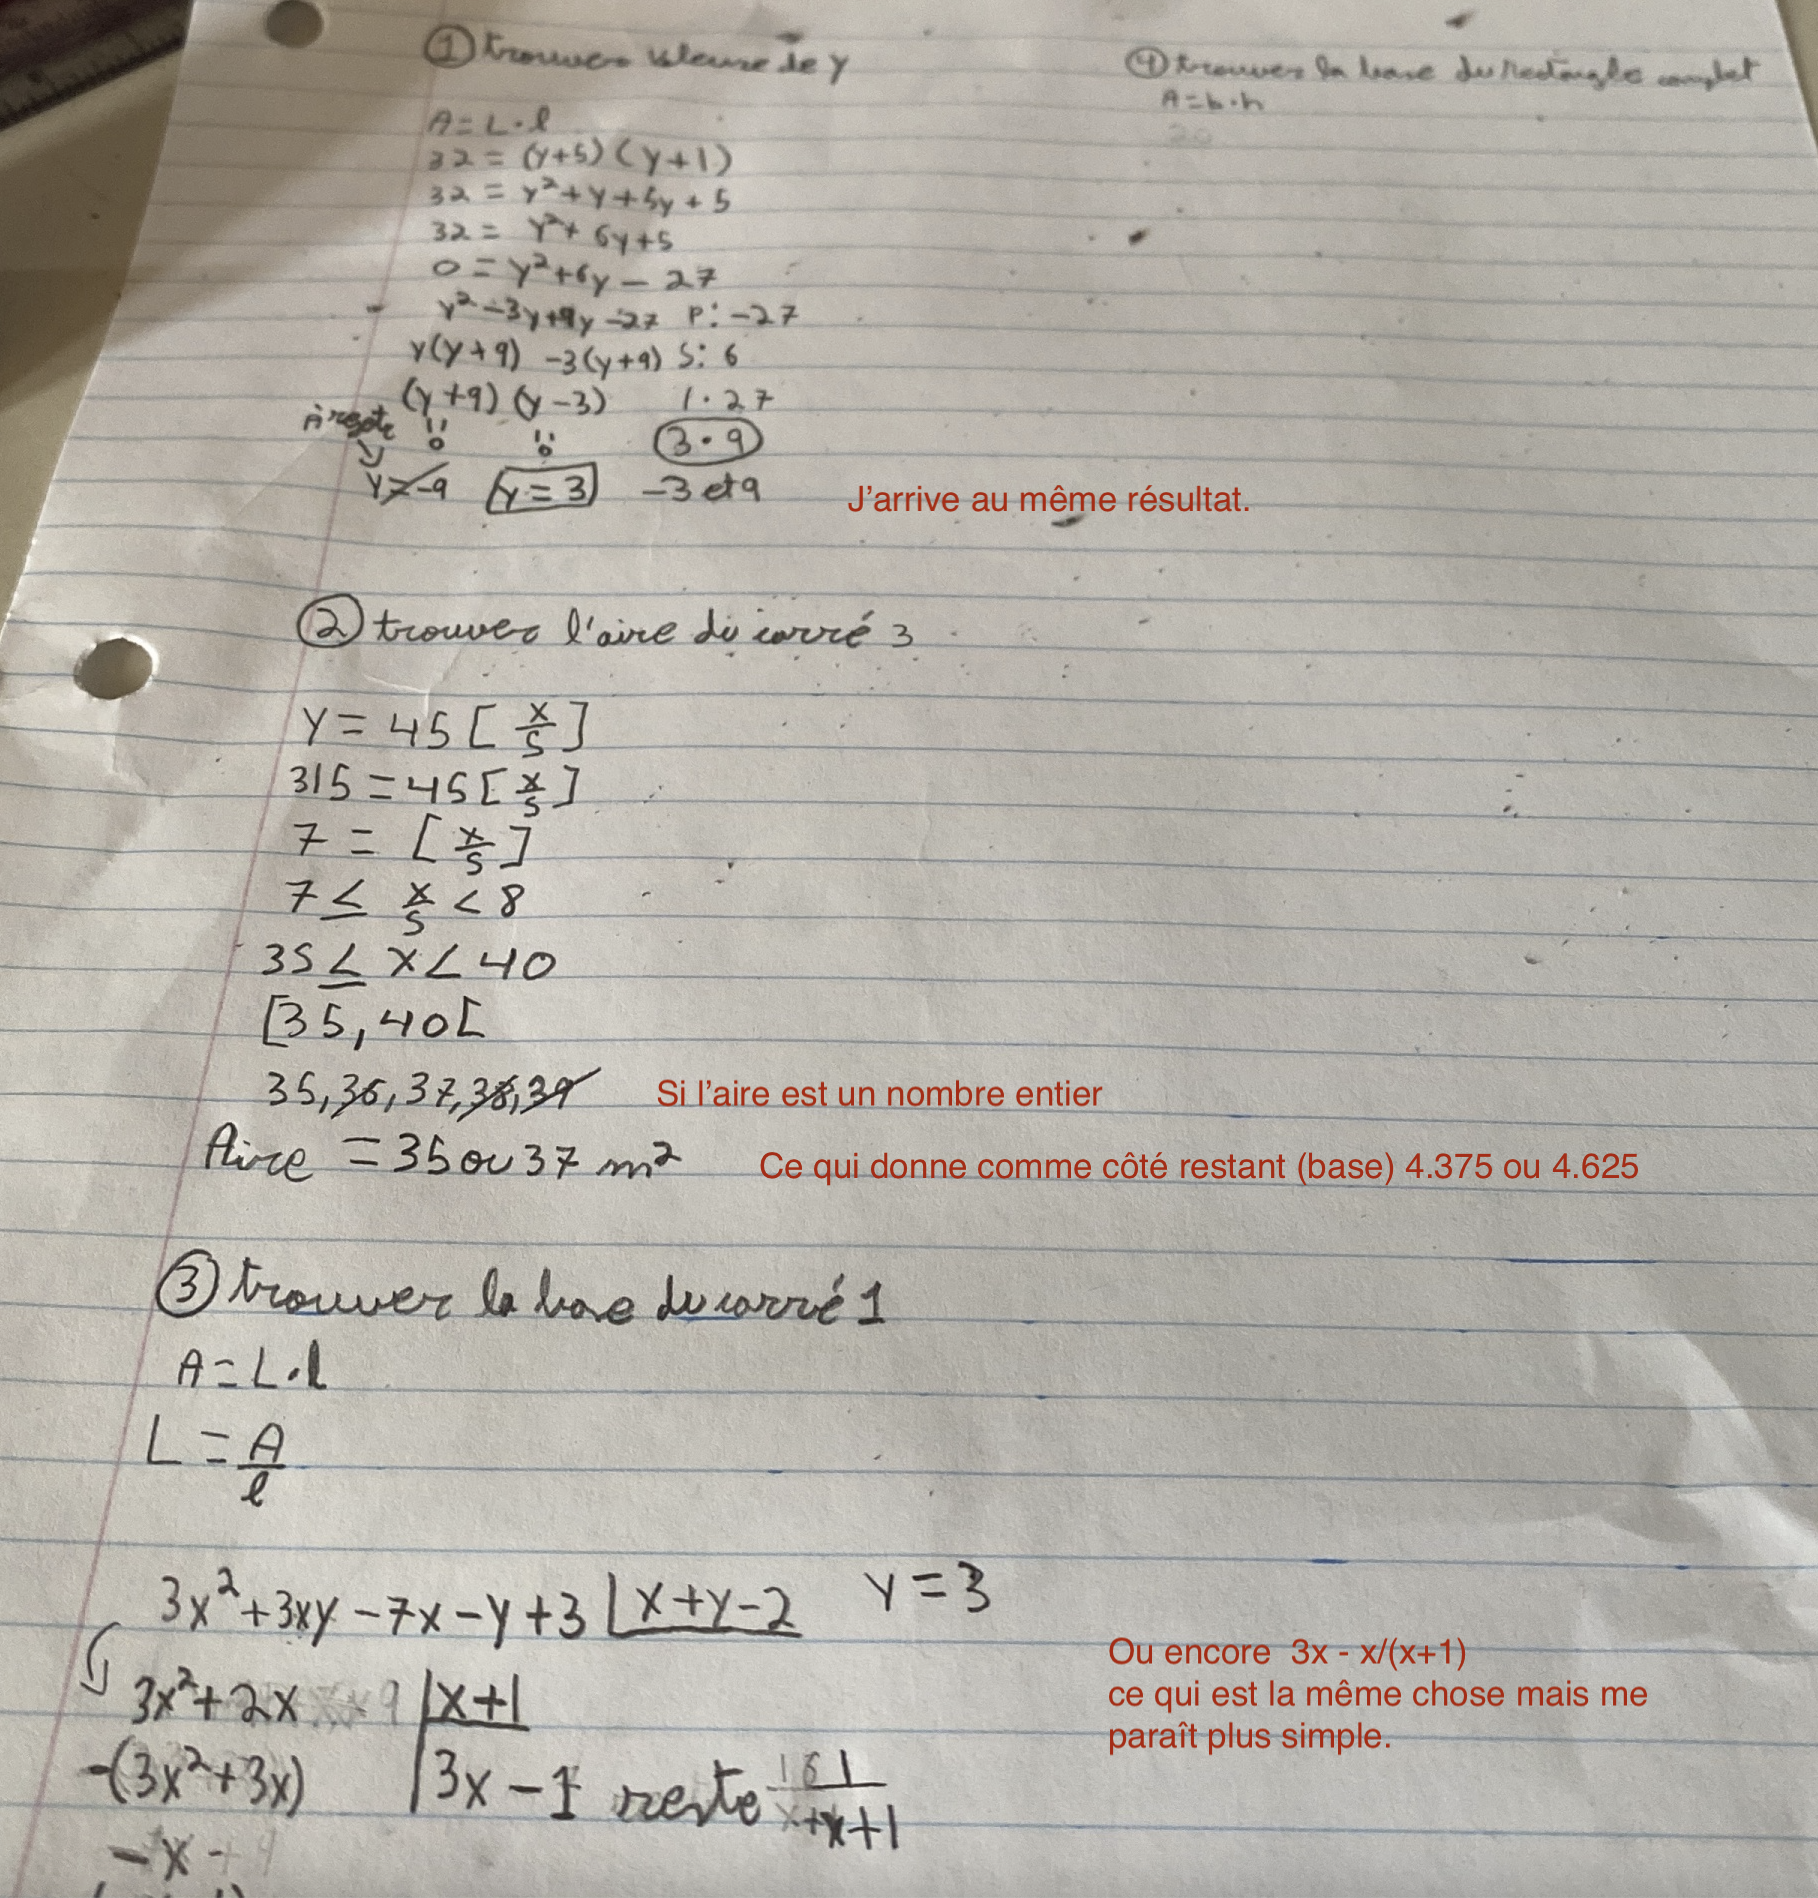 ① trouver valeure de y
A = L · l
32 = (y+5)(y+1)
32 = y² + y + 5y + 5
32 = y² + 6y + 5
0 = y² + 6y - 27
y² - 3y + 9y - 27 P: -27
y(y+9) -3(y+9) S: 6
(y+9)(y-3) 1 · 27
À rejeter 3 · 9
y = -9 y = 3 -3 et 9
J'arrive au même résultat.
② trouver l'aire du carré 3
y = 45 [x/5]
315 = 45 [x/5]
7 = [x/5]
7 ≤ x/5 < 8
35 ≤ x < 40
[35, 40[
35, 36, 37, 38, 39 Si l'aire est un nombre entier
Aire = 35 ou 37 m² Ce qui donne comme côté restant (base) 4.375 ou 4.625
③ trouver la base du carré 1
A = L · l
L = A/l
3x² + 3xy - 7x - y + 3 |x + y - 2 y = 3
3x² + 2x |x+1
-(3x² + 3x) 3x - 1 reste 1/x+1
-x
Ou encore 3x - x/(x+1)
ce qui est la même chose mais me
paraît plus simple.
④ trouver la base du rectangle complet
A = b · h
20